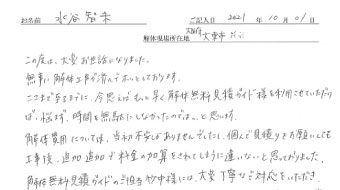 お名前 水谷智子 ご記入日 2021 年 10 月 01 日
解体現場所在地 大阪府大東市
この度は、大変お世話になりました。
無事に解体工事が済んでホッとしております。
ここまで至るまでに、今思えばもっと早く解体無料見積ガイド様を利用させていただけ
ば、悩まず、時間を無駄にしなかったのでは、と思います。
解体費用については、当初不安がありませんでしたし、個人で見積りをお願いしても
工事後、追加追加で料金の加算をされてしまうに違いないと思っておりました。
解体無料見積ガイドのご担当竹中様には、大変丁寧なご対応をいただき、